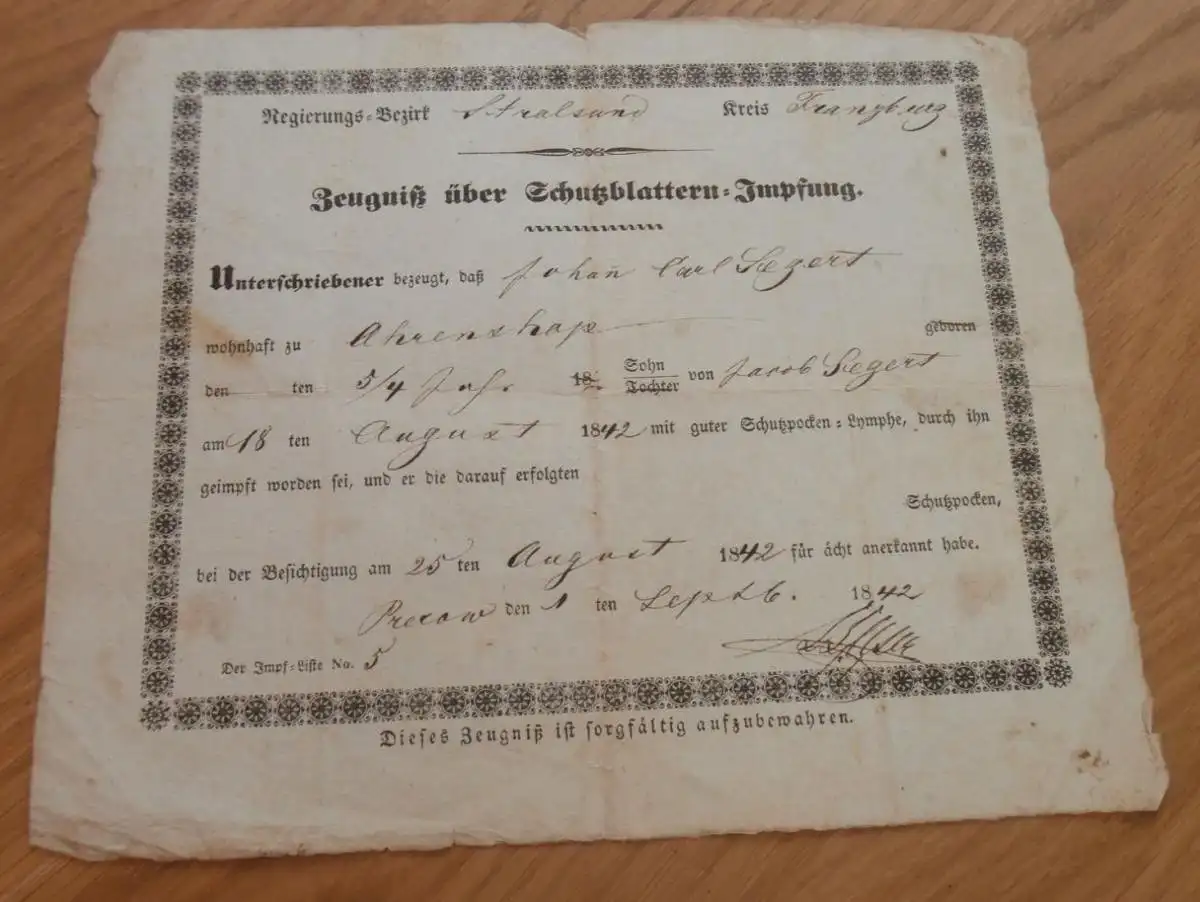 Regierungs-Bezirk Stralsund Kreis Franzburg
Zeugniß über Schutzblattern-Impfung.
Unterschriebener bezeugt, daß Johan̄ Carl Segert
wohnhaft zu Ahrenshap geboren
den ten 5/4 Jahr. 18 Sohn/Tochter von Jacob Segert
am 18 ten August 1842 mit guter Schutzpocken-Lymphe, durch ihn
geimpft worden sei, und er die darauf erfolgten
Schutzpocken,
bei der Besichtigung am 25 ten August 1842 für ächt anerkannt habe.
Prerow den 1 ten Septb. 1842
Der Impf-Liste No. 5
Dieses Zeugniß ist sorgfältig aufzubewahren.